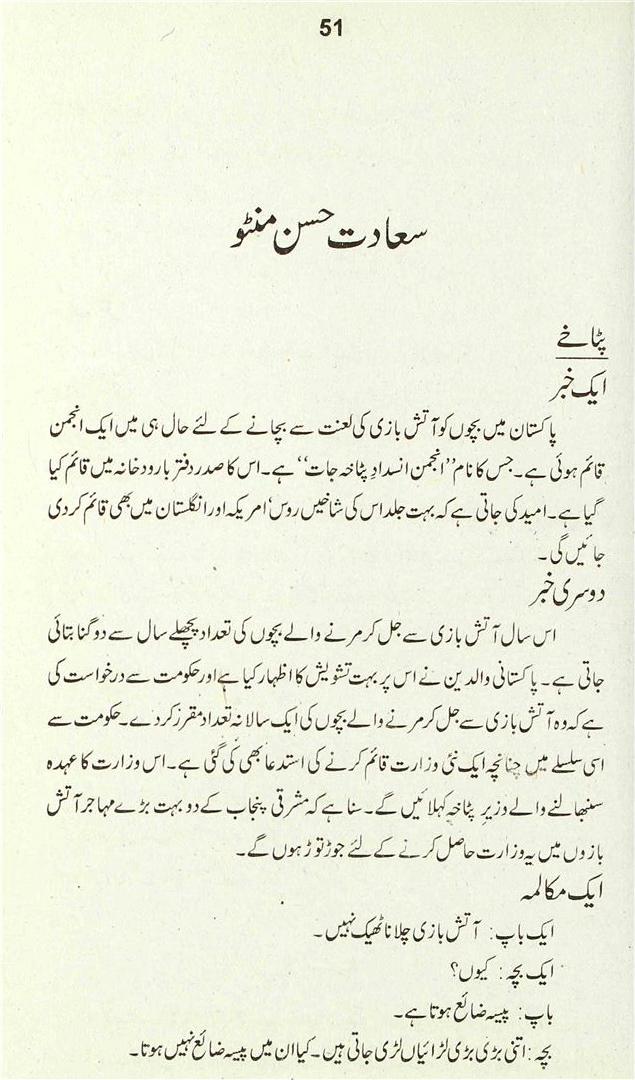 51
سعادت حسن منٹو
پٹاخے
ایک خبر
پاکستان میں بچوں کو آتش بازی کی لعنت سے بچانے کے لئے حال ہی میں ایک انجمن
قائم ہوئی ہے۔ جس کا نام ’’انجمن انسدادِ پٹاخہ جات‘‘ ہے۔ اس کا صدر دفتر بارود خانہ میں قائم کیا
گیا ہے۔ امید کی جاتی ہے کہ بہت جلد اس کی شاخیں روس‘ امریکہ اور انگلستان میں بھی قائم کر دی
جائیں گی۔
دوسری خبر
اس سال آتش بازی سے جل کر مرنے والے بچوں کی تعداد پچھلے سال سے دوگنا بتائی
جاتی ہے۔ پاکستانی والدین نے اس پر بہت تشویش کا اظہار کیا ہے اور حکومت سے درخواست کی
ہے کہ وہ آتش بازی سے جل کر مرنے والے بچوں کی ایک سالانہ تعداد مقرر کر دے۔ حکومت سے
اسی سلسلے میں چنانچہ ایک نئی وزارت قائم کرنے کی استدعا بھی کی گئی ہے۔ اس وزارت کا عہدہ
سنبھالنے والے وزیر پٹاخہ کہلائیں گے۔ سنا ہے کہ مشرقی پنجاب کے دو بہت بڑے مہاجر آتش
بازوں میں یہ وزارت حاصل کرنے کے لئے جوڑ توڑ ہوں گے۔
ایک مکالمہ
ایک باپ: آتش بازی چلانا ٹھیک نہیں۔
ایک بچہ: کیوں؟
باپ: پیسہ ضائع ہوتا ہے۔
بچہ: اتنی بڑی بڑی لڑائیاں لڑی جاتی ہیں۔ کیا ان میں پیسہ ضائع نہیں ہوتا۔